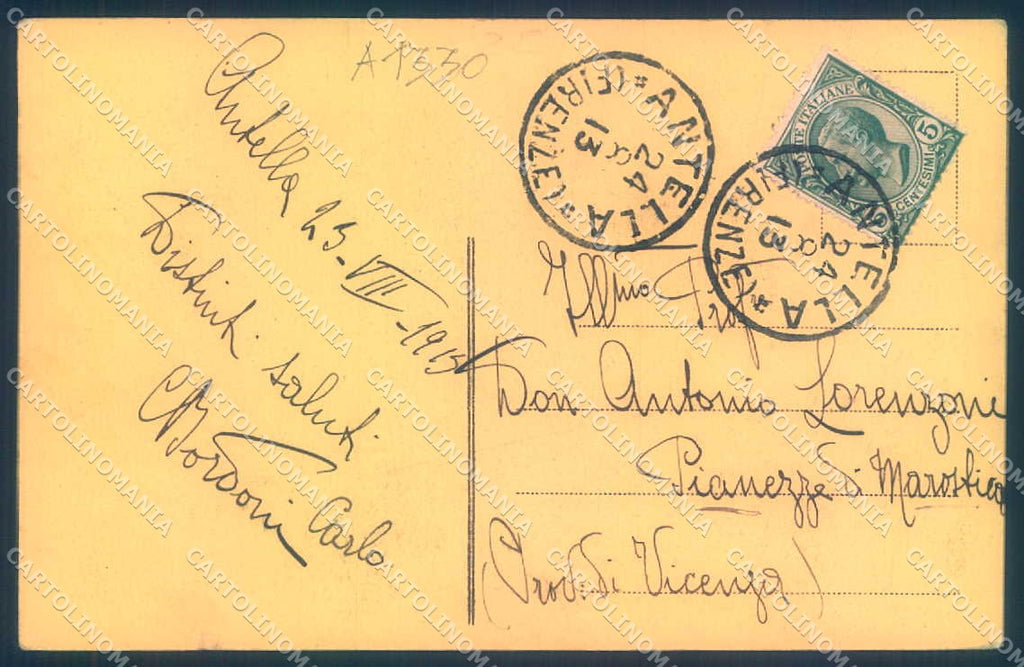 A1330
Antella 25-VIII-1913
Distinti saluti
CBordoni Carlo
ANTELLA
(FIRENZE)
24
8
13
POSTE ITALIANE
CENTESIMI 5
ANTELLA
(FIRENZE)
24
8
13
Ill.mo Prof
Don Antonio Lorenzoni
Pianezze di Marostica
(Prov. di Vicenza)
CARTOLINOMANIA